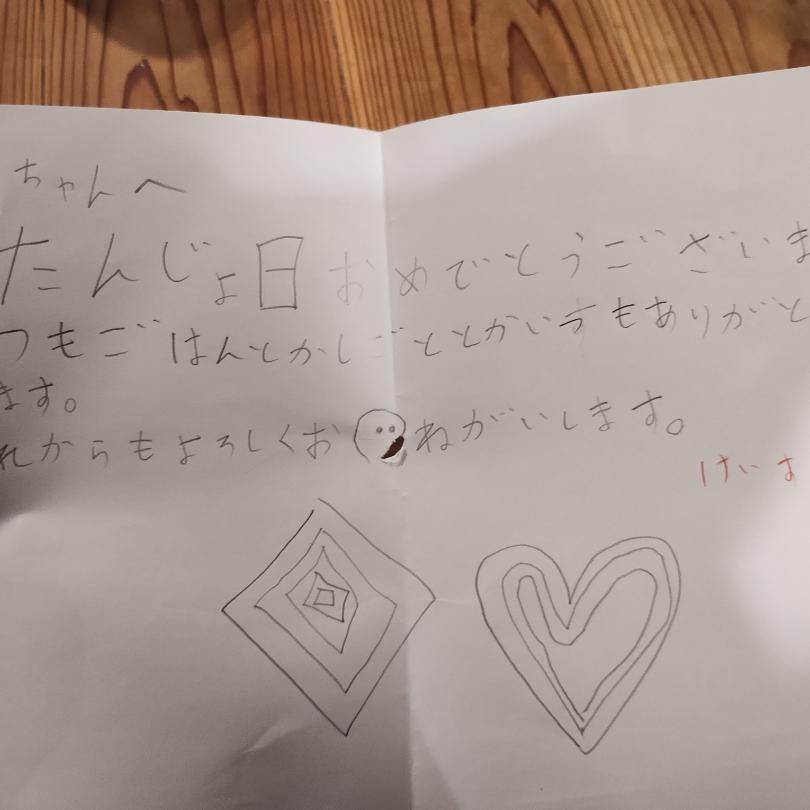 ちゃんへ
たんじょ日おめでとうございま
つもごはんとかしごととかいすもありがと
ます。
れからもよろしくおねがいします。
けいま